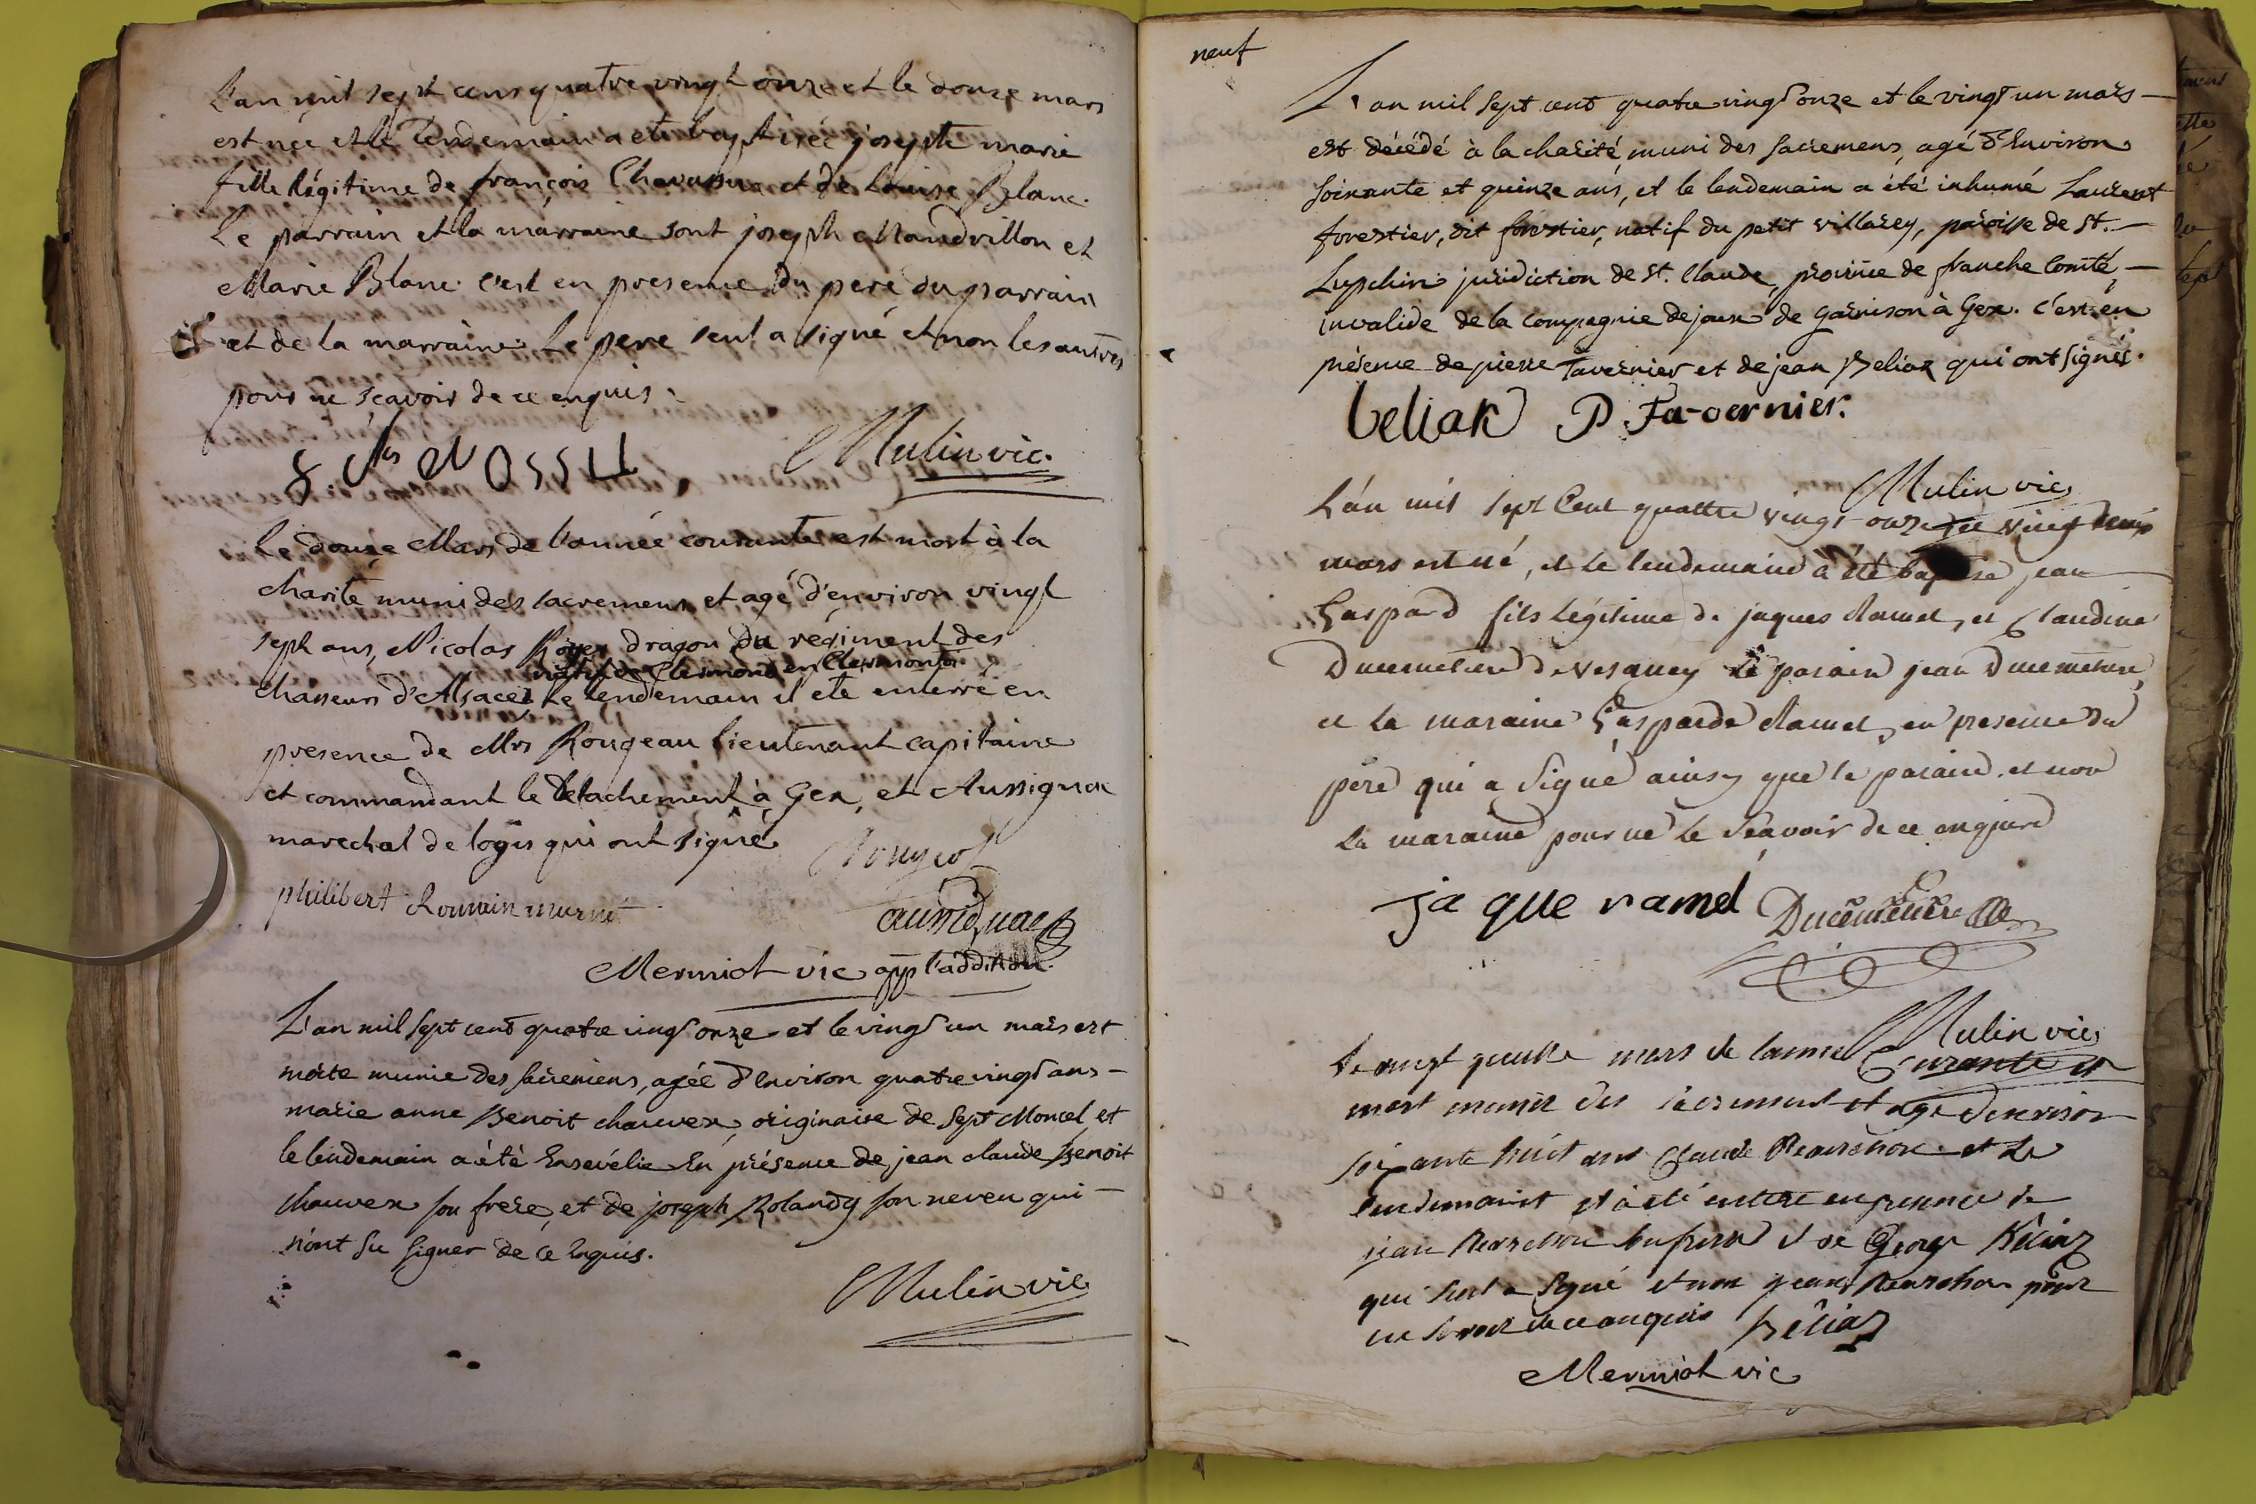 L'an mil sept cens quatre vingt onze et le douze mars
est née et le lendemain a eté baptisée josephte marie
fille légitime de françois et de Louise Blanc.
Le parrain et la marraine sont joseph Mandrillon et
Marie Blanc. c'est en presence du pere du parrain
et de la marraine. Le pere seul a signé et non les autres
pour ne scavoir de ce enquis.
Mulin vic.
Le douze Mars de l'année courante est mort à la
charité muni des sacremens et agé d'environ vingt
sept ans, Nicolas Royer dragon du régiment des
natif de Clermond en Clermontoi
chasseurs d'Alsace Le lendemain il eté enterré en
presence de Mrs Rougeau lieutenant capitaine
et commandant le Detachement à Gex, et Aussignac
marechal de logis qui ont signé
Rougeot
philibert Romain
aussignac
Mermiot vic app l'addition.
L'an mil sept cent quatre vingt onze et le vingt un mars est
morte munie des sacremens, agée d'environ quatre vingt ans -
marie anne Benoit chauvex, originaire de Sept Moncel, et
le lendemain a été Ensevélie En présence de jean claude Benoit
chauvex son frere, et de joseph Rolandy son neveu qui -
n'ont su signer de ce Enquis.
Mulin vic
neuf
L'an mil sept cent quatre vingt onze et le vingt un mars -
est décédé à la charité muni des sacremens, agé d'Environ
soixante et quinze ans, et le lendemain a été inhumé Laurent
forestier, dit forestier, natif du petit villarey, paroisse de St. -
Lupchin juridiction de St. Claude, province de franche Comté, -
invalide de la compagnie de joux de garnison à Gex. C'est en
présence de pierre Tavernier et de jean Beliaz qui ont signés.
beliaz P. Tavernier.
Mulin vic
L'an mil sept Cent quattre vingt onze le vingt deux
mars est né, et le lendemain a été baptisé jean
Gaspard fils légitime de jaques Ramel, et Claudine
Ducimetiere de Vesancy Le parain jean Ducimetiere,
et la maraine Gasparde Ramel, en presence du
père qui a signé ainsy que le parain et non
la maraine pour ne le sçavoir de ce enquise
jaque ramel Ducimetière
Mulin vic
Le vingt quatre mars de lannee Courante est
mort muni des sacrement et agé denviron
soixante huit ans Claude et le
lendemain il à eté enterré en presence de
jean son frere et de George Béliaz
qui seul a signé et non jean pour
ne savoir de ce enquis Béliaz
Mermiot vic